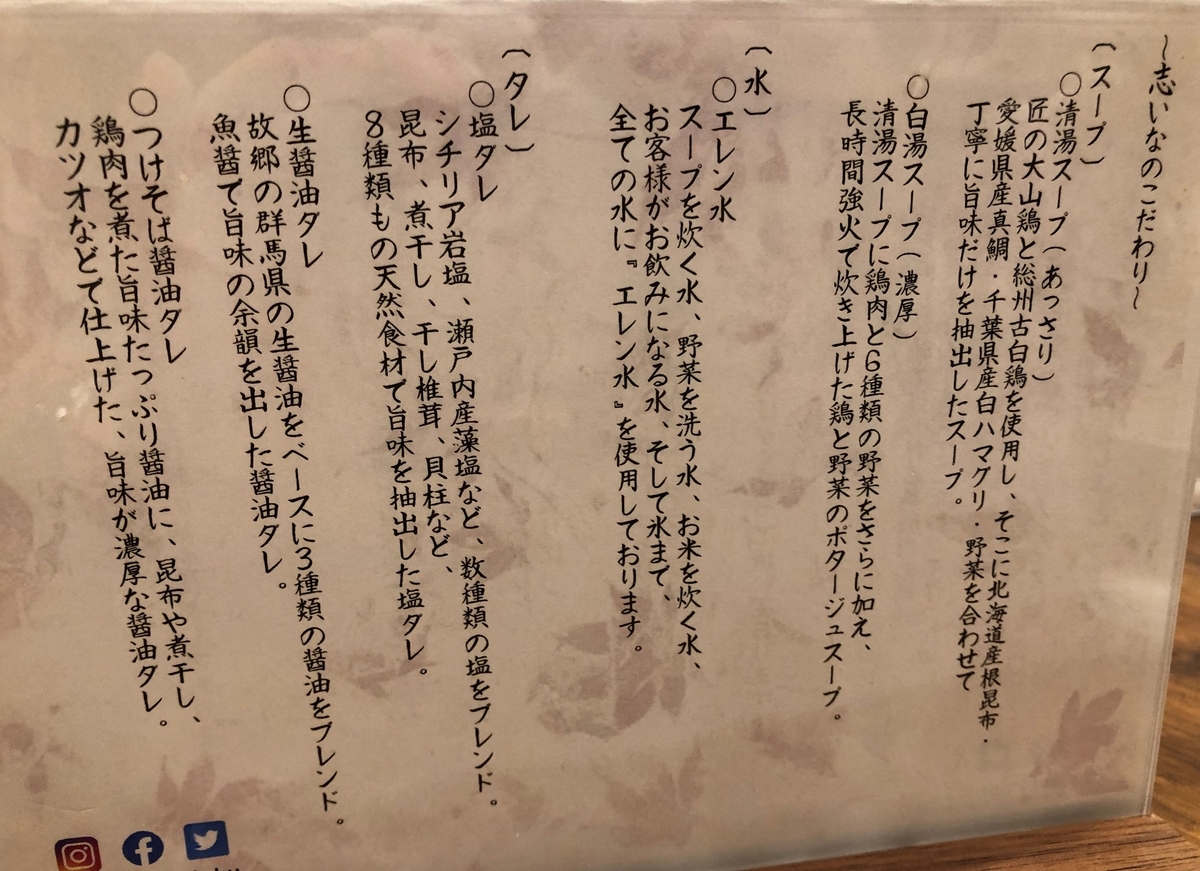 ~志いなのこだわり~
〔スープ〕
○清湯スープ(あっさり)
匠の大山鶏と総州古白鶏を使用し、そこに北海道産根昆布・
愛媛県産真鯛・千葉県産白ハマグリ・野菜を合わせて
丁寧に旨味だけを抽出したスープ。
○白湯スープ(濃厚)
清湯スープに鶏肉と6種類の野菜をさらに加え、
長時間強火で炊き上げた鶏と野菜のポタージュスープ。
〔水〕
○エレン水
スープを炊く水、野菜を洗う水、お米を炊く水、
お客様がお飲みになる水、そして氷まで、
全ての水に『エレン水』を使用しております。
〔タレ〕
○塩タレ
シチリア岩塩、瀬戸内産藻塩など、数種類の塩をブレンド。
昆布、煮干し、干し椎茸、貝柱など、
8種類もの天然食材で旨味を抽出した塩タレ。
○生醤油タレ
故郷の群馬県の生醤油をベースに3種類の醤油をブレンド。
魚醤で旨味の余韻を出した醤油タレ。
○つけそば醤油タレ
鶏肉を煮た旨味たっぷり醤油に、昆布や煮干し、
カツオなどで仕上げた、旨味が濃厚な醤油タレ。